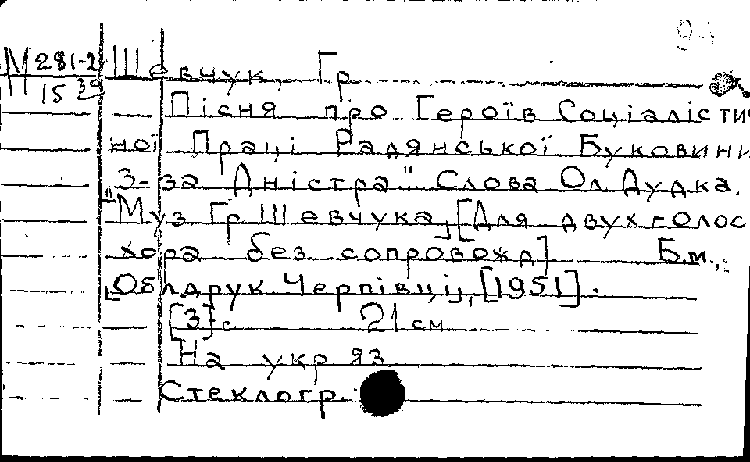 М 281-2
15 39
Шевчук, Гр.
Пісня про Героїв Соціалістич
ної Праці Радянської Буковини
З-за Дністра" Слова Ол Дудка.
"Муз Гр Шевчука, [Для двухголос
хора без сопровожд] Б.м.,
Облдрук Чернівці, [1951].
[3] с 21 см
На укр яз
Стеклогр.